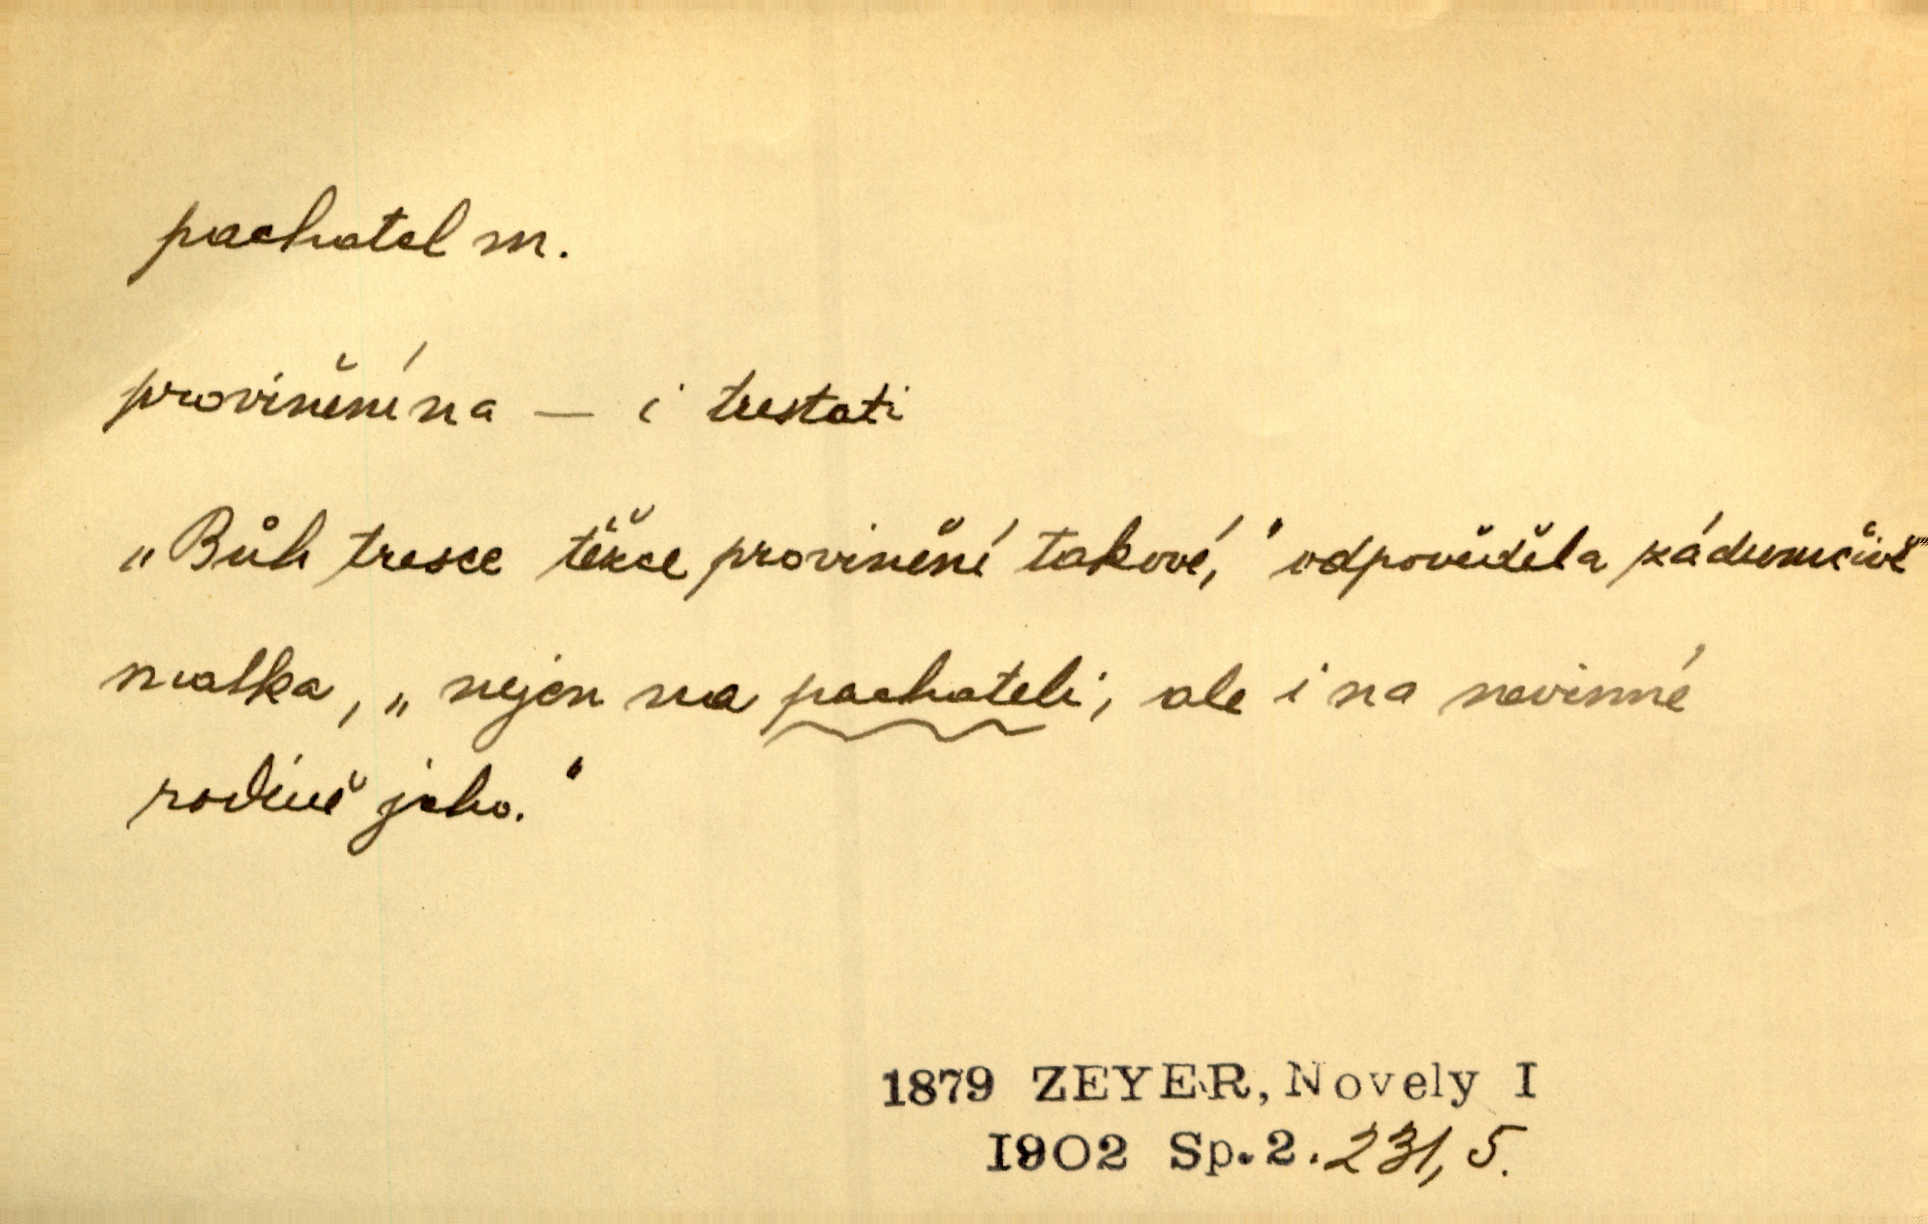 pachatel m.
provinění na — i trestati
„Bůh tresce těžce provinění takové,“ odpověděla zádumčivě
matka, „nejen na pachateli, ale i na nevinné
rodině jeho.“
1879 ZEYER, Novely I
1902 Sp. 2. 231, 5.